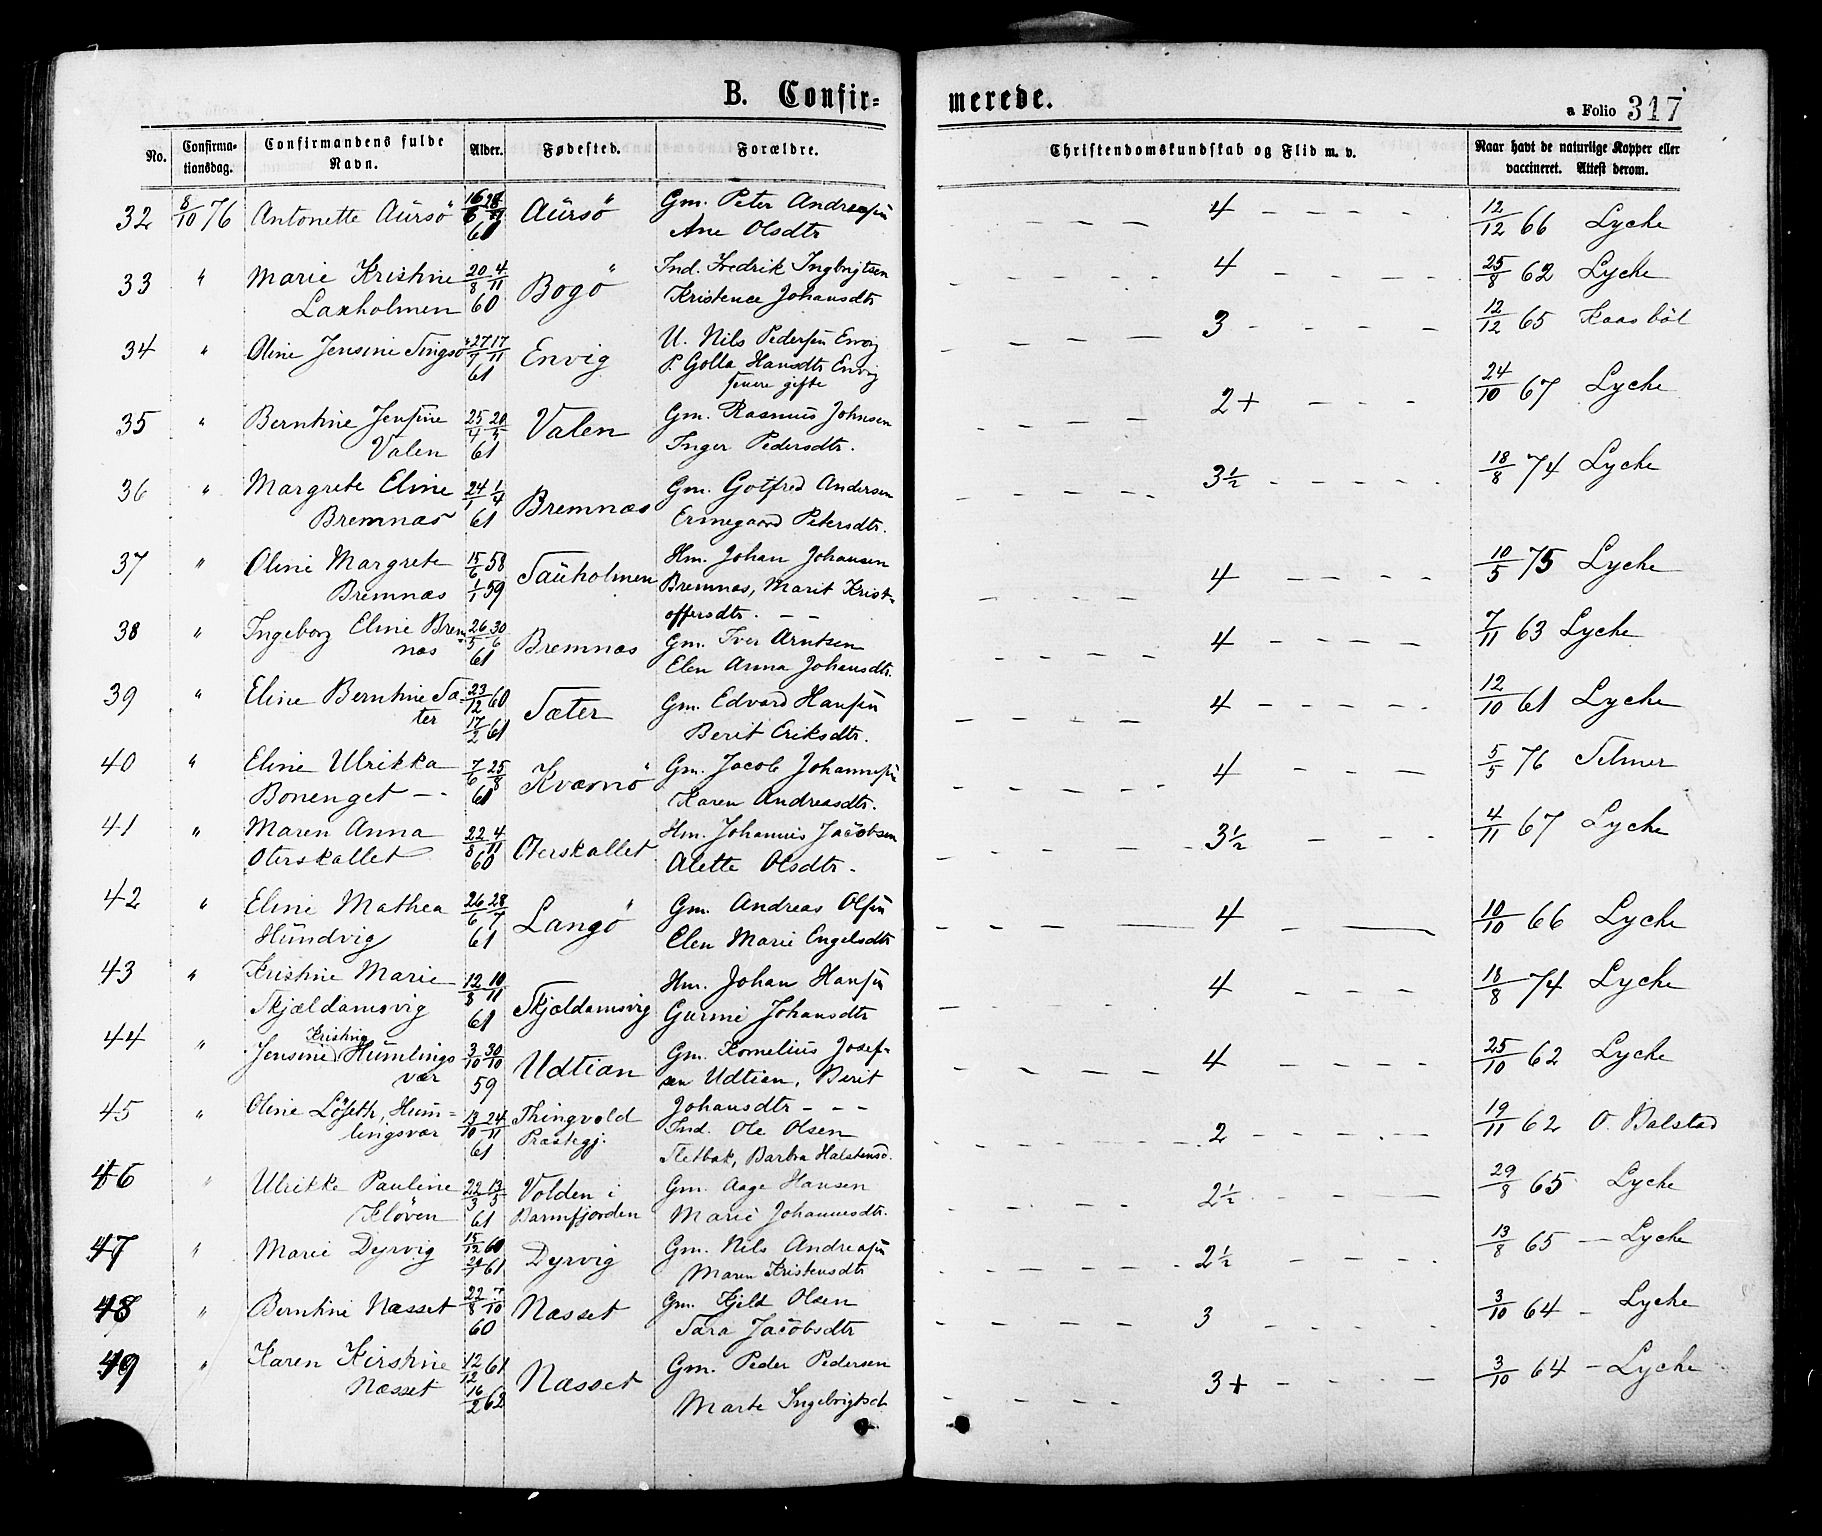 B. Confir-
merede.
a Folio 317
No.
Confirma-
tionsdag.
Confirmandens fulde
Navn.
Alder.
Fødested.
Forældre.
Christendomskundskab og Flid m. v.
Naar havt de naturlige Kopper eller
vaccineret. Attest derom.
32 8/10 76 Antonette Aursö 16/6 61 Aursö Gm. Peter Andreasen 4 12/12 66 Lyche
Ane Olsdtr
33 " Marie Kristine 20/8 4/11 60 Bogö Ind. Fredrik Ingbrigtsen 4 25/8 62 Lyche
Laxholmen Kristence Johansdtr
34 " Oline Jensine Tingsö 27/7 17/11 61 Envig U. Nils Pedersen Envig 3 12/12 65 Kaasböl
P. Golla Hansdtr Envig
senere gifte
35 " Berntine Jensine 25/4 61 Valen Gm. Rasmus Johnsen 2+ 24/10 67 Lyche
Valen Inger Pedersdtr.
36 " Margrete Eline 24/1 1/4 61 Bremnæs Gm. Gotfred Andersen 3½ 18/8 74 Lyche
Bremnæs Ermegaard Petersdtr.
37 " Oline Margrete 15/6 58 Tauholmen Hm. Johan Johansen 4 10/5 75 Lyche
Bremnæs 1/1 59 Bremnæs, Marit Krist-
offersdtr. - -
38 " Ingeborg Eline Brem- 26/5 30/6 61 Bremnæs Gm. Iver Arntsen 4 7/11 63 Lyche
næs Elen Anna Johansdtr.
39 " Eline Berntine Sæ- 23/12 60 Sæter Gm. Edvard Hansen 4 12/10 61 Lyche
ter 17/2 61 Berit Eriksdtr.
40 " Eline Ulrikka 7/6 25/8 61 Kværnö Gm. Jacob Johannesen 4 5/5 76 Selmer
Bonenget - Karen Andreasdtr.
41 " Maren Anna 22/8 4/11 60 Oterskallet Hm. Johannes Jacobsen 3½ 4/11 67 Lyche
Oterskallet Alette Olsdtr.
42 " Eline Mathea 26/6 28/7 61 Langö Gm. Andreas Olsen 4 10/10 66 Lyche
Hundvig Elen Marie Engelsdtr
43 " Kristine Marie 12/8 10/11 61 Skjældamsvig Hm. Johan Hansen 4 18/8 74 Lyche
Skjældamsvig Gurine Johansdtr
44 " Jensine Kristine Humlings 3/10 30/10 59 Udtian Gm. Kornelius Josef- 4 25/10 62 Lyche
vær en Udtien, Berit
Johansdtr - - -
45 " Oline Löseth, Hum- 13/10 24/11 61 Thingvold Ind. Ole Olsen 2 19/11 62 O. Balstad
lingsvær Præstegj. Sletbak, Barbra Halstensd.
46 " Ulrikke Pauline 22/3 13/5 61 Volden i Gm. Aage Hansen 2½ 29/8 65 Lyche
Klöven Barmfjorden Marie Johannesdtr.
47 " Marie Dyrvig 15/12 60 Dyrvig Gm. Nils Andreasen 2½ 13/8 65 - Lyche
Maren Kristensdtr
48 " Berntine Næsset 22/8 60 Næsset Gm. Kjelt Olsen 3 3/10 64 - Lyche
Sara Jacobsdtr
49 " Karen Kirstine 12/12 61 Næsset Gm. Peder Pedersen 3+ 3/10 64 - Lyche
Næsset 16/2 62 Marte Ingebrigtsd.